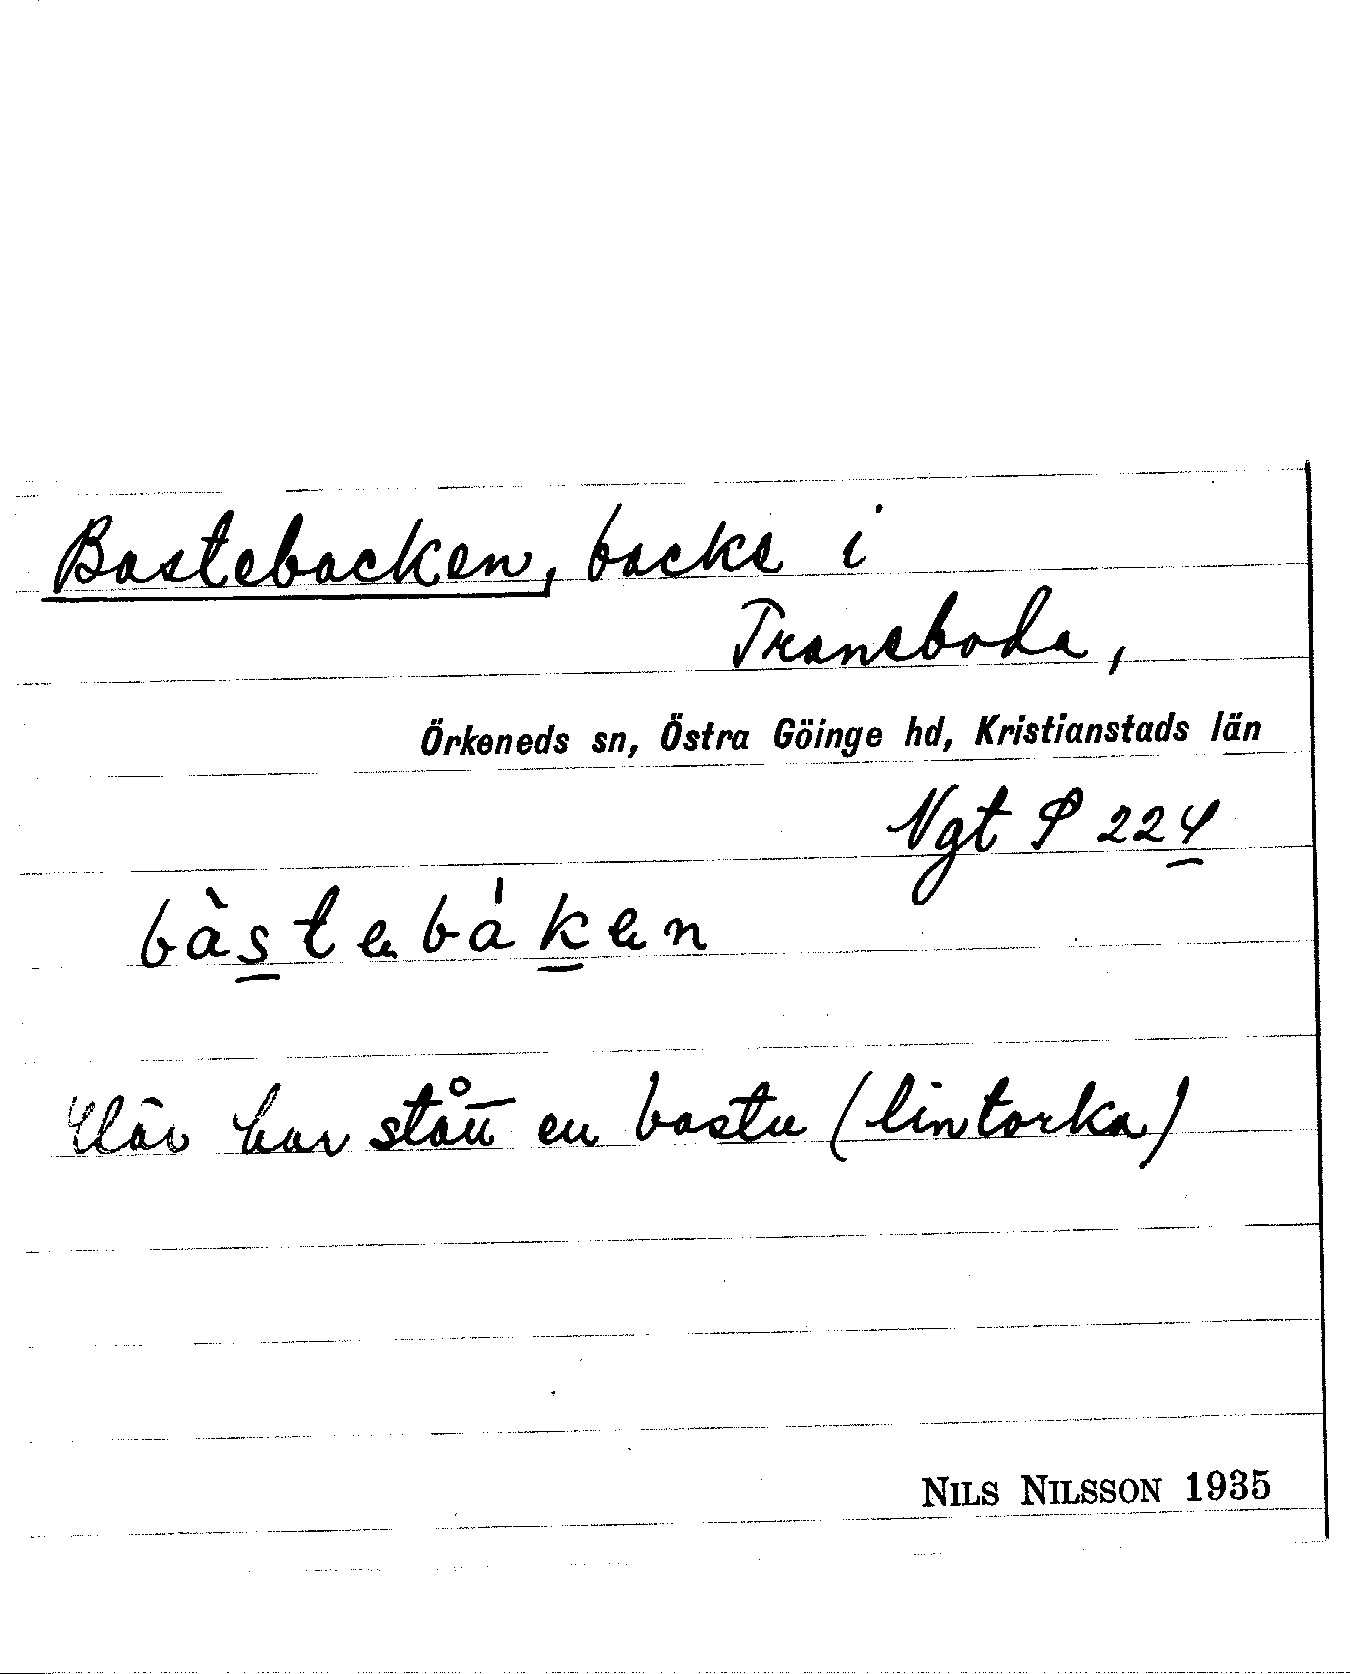 Bastebacken, backe i
Traneboda,
Örkeneds sn, Östra Göinge hd, Kristianstads län
Ngt P 224
bàstebáken
Här har stått en bastu (lintorka)
NILS NILSSON 1935